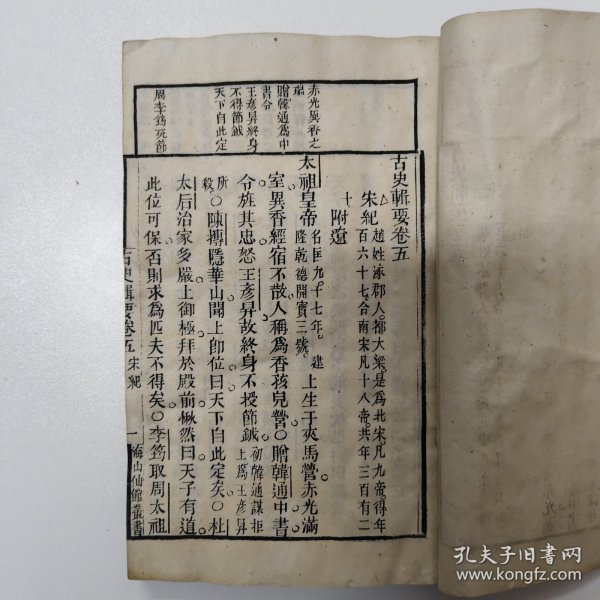 赤光異香之
瑞
贈韓通爲中
書令
王彥昇終身
不得節鉞
天下自此定
周李筠死節
古史輯要卷五
宋紀 趙姓涿郡人都大梁是爲北宋凡九帝得年
百六十七合南宋凡十八帝共年三百有二
十 附遼
太祖皇帝 名匡九十七年。建
隆乾德開寶三號。 上生于夾馬營赤光滿
室異香經宿不散人稱爲香孩兒營〇贈韓通中書
令旌其忠怒王彥昇故終身不授節鉞 初韓通謀拒
上爲王彥昇
所
殺 〇陳摶隱華山聞上卽位曰天下自此定矣〇杜
太后治家多嚴上御極拜於殿前愀然曰天子有道
此位可保否則求爲匹夫不得矣〇李筠取周太祖
古史輯要卷五 宋紀 一 海山仙館叢書
孔夫子旧书网
kongfz.com